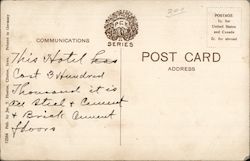 COMMUNICATIONS
PCK
SERIES
POST CARD
ADDRESS
POSTAGE
1c. for
United States
and Canada
2c. for abroad
This Hotel has
Cost 3 Hundred
Thousand it is
all Steel & Cement
& Brick Cement
floors